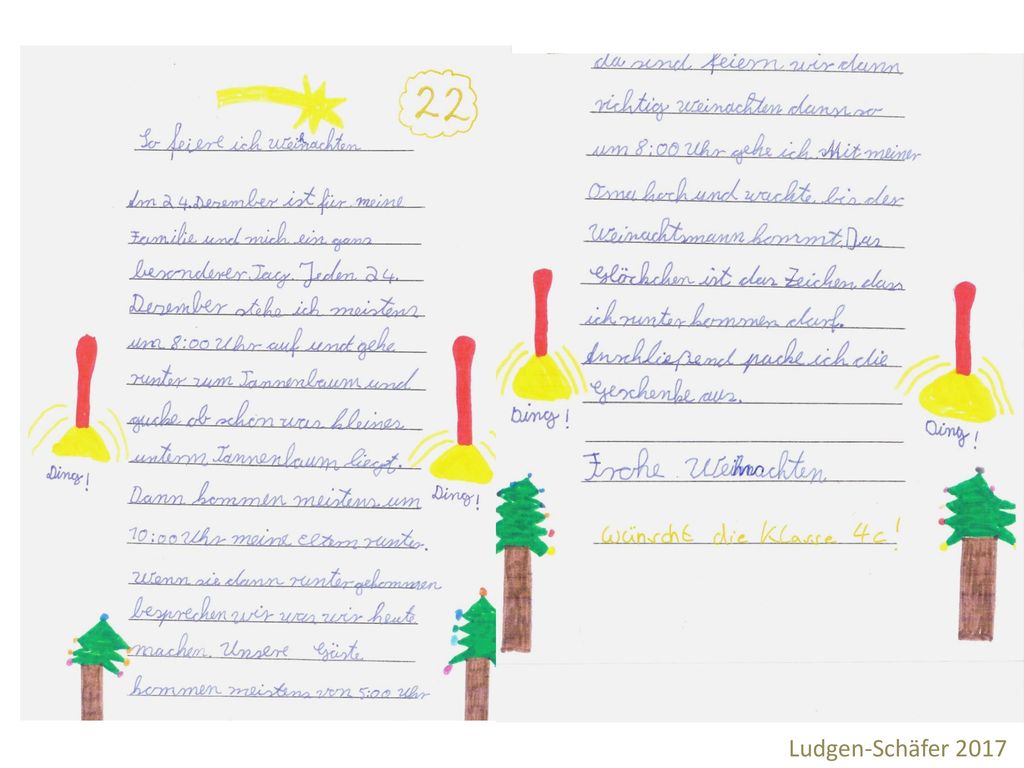 22
So feiere ich Weihnachten
Am 24. Dezember ist für meine
Familie und mich ein ganz
besonderer Tag. Jeden 24.
Dezember stehe ich meistens
um 8:00 Uhr auf und gehe
runter zum Tannenbaum und
gucke ob schon was kleines
unterm Tannenbaum liegt.
Dann kommen meistens um
10:00 Uhr meine eltern runter.
Wenn sie dann runtergekommen
besprechen wir was wir heute
machen. Unsere Gäste
kommen meistens von 5:00 Uhr
Ding!
Ding!
da sind feiern wir dann
richtig Weinachten dann so
um 8:00 Uhr gehe ich Mit meiner
Oma hoch und wachte bis der
Weinachtsmann kommt. Das
Glöckchen ist das Zeichen dass
ich runter kommen darf.
Anschließend packe ich die
Geschenke aus.
Ding!
Ding!
Frohe Weihnachten
wünscht die Klasse 4c!
Ludgen-Schäfer 2017